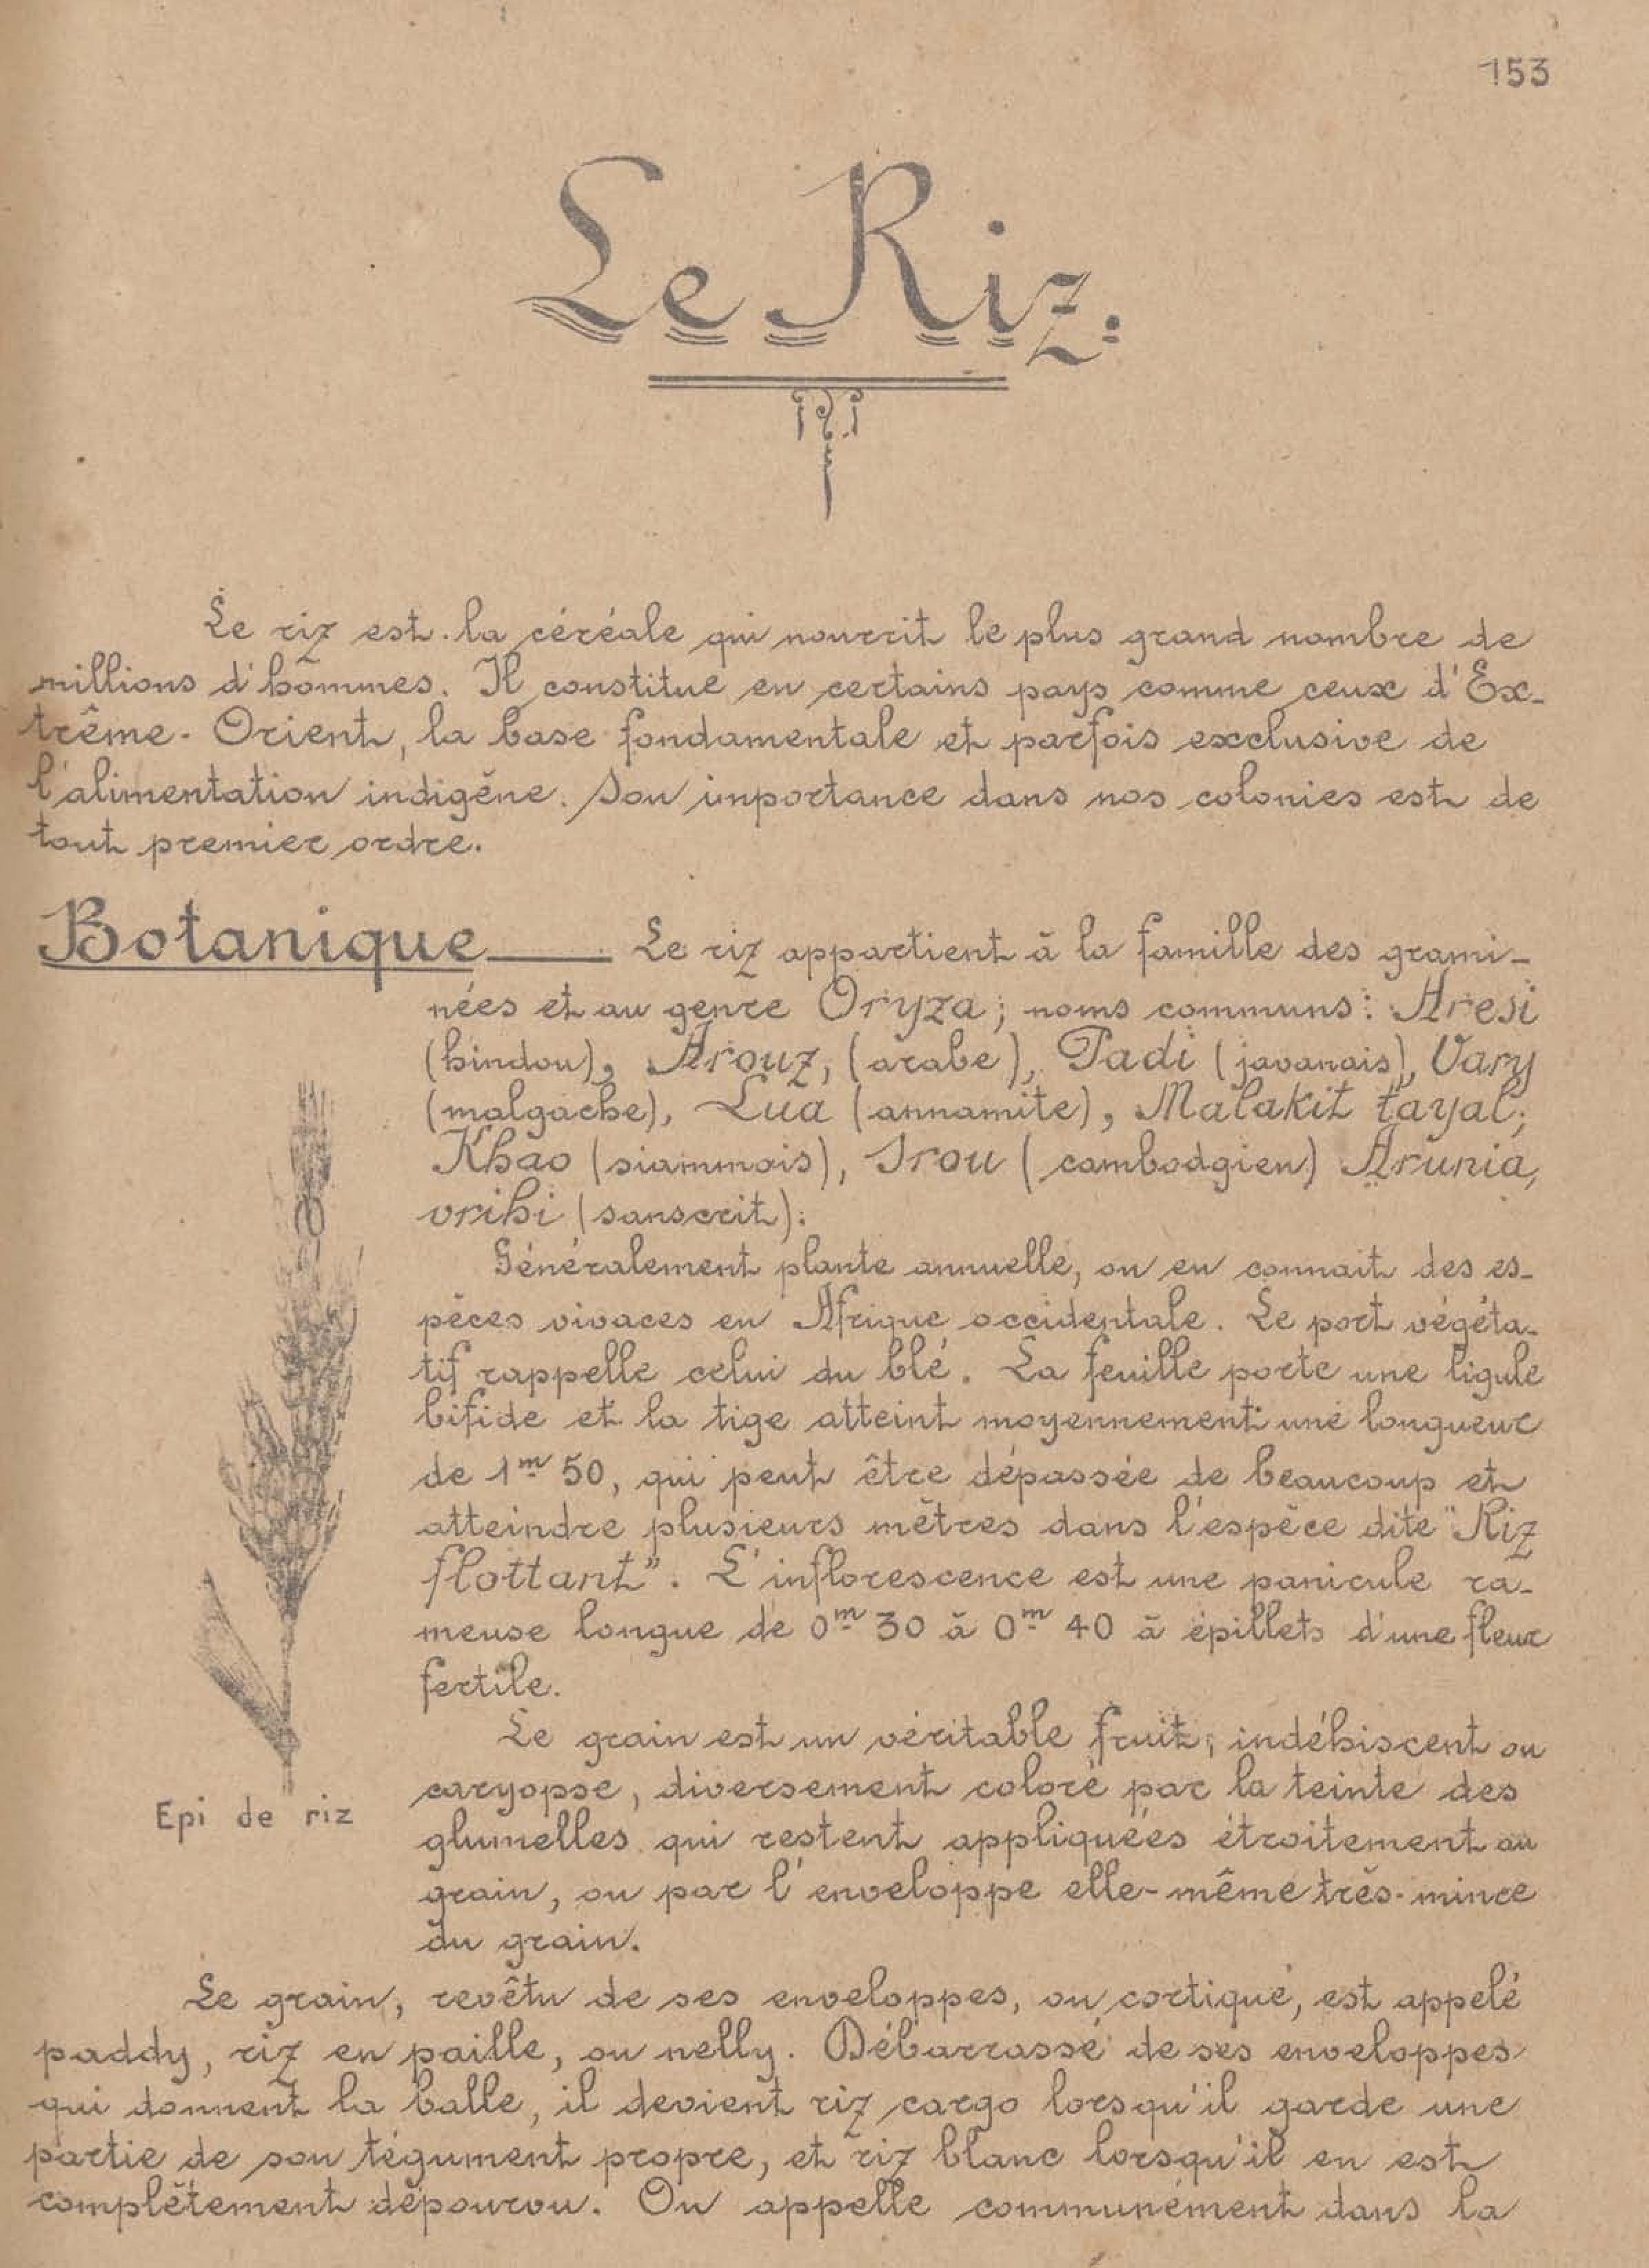 153
Le Riz.
Le riz est la céréale qui nourrit le plus grand nombre de
millions d'hommes. Il constitue en certains pays comme ceux d'Ex-
trême-Orient, la base fondamentale et parfois exclusive de
l'alimentation indigène. Son importance dans nos colonies est de
tout premier ordre.
Botanique — Le riz appartient à la famille des grami-
nées et au genre Oryza; noms communs: Aresi
(hindou), Arouz, (arabe), Padi (javanais), Vary
(malgache), Lua (annamite), Malakit tayal;
Khao (siammois), Srou (cambodgien) Arunia,
vrihi (sanscrit).
Généralement plante annuelle, on en connait des es-
pèces vivaces en Afrique occidentale. Le port végéta-
tif rappelle celui du blé. La feuille porte une ligule
bifide et la tige atteint moyennement une longueur
de 1m 50, qui peut être dépassée de beaucoup et
atteindre plusieurs mètres dans l'espèce dite "Riz
flottant". L'inflorescence est une panicule ra-
meuse longue de 0m 30 à 0m 40 à épillets d'une fleur
fertile.
Le grain est un véritable fruit, indéhiscent ou
caryopse, diversement coloré par la teinte des
glumelles qui restent appliquées étroitement au
grain, ou par l'enveloppe elle-même très-mince
du grain.
Epi de riz
Le grain, revêtu de ses enveloppes, ou cortiqué, est appelé
paddy, riz en paille, ou nelly. Débarrassé de ses enveloppes
qui donnent la balle, il devient riz cargo lorsqu'il garde une
partie de son tégument propre, et riz blanc lorsqu'il en est
complètement dépourvu. On appelle communément dans la